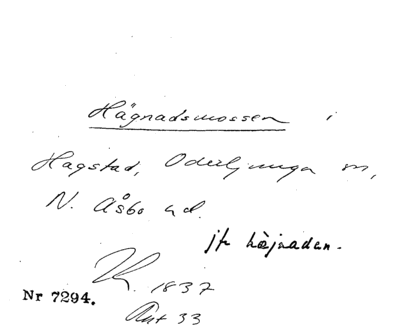 Hägnadsmossen i
Hagstad, Oderljunga sn,
N. Åsbo hd.
jfr häjnaden.
1837
Nr 7294.
Ant 33